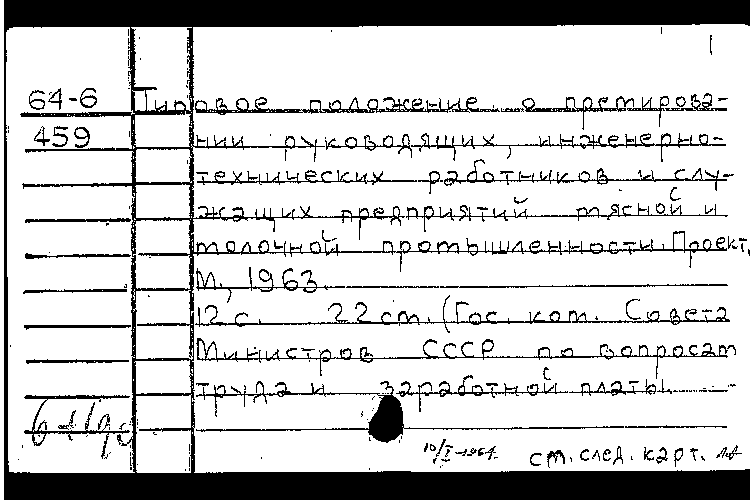 64-6 Типовое положение о премирова-
459 нии руководящих, инженерно-
технических работников и слу-
жащих предприятий мясной и
молочной промышленности. Проект.
М., 1963.
12 с. 22 см. (Гос. ком. Совета
Министров СССР по вопросам
труда и заработной платы.
10/I-1964 см. след. карт.